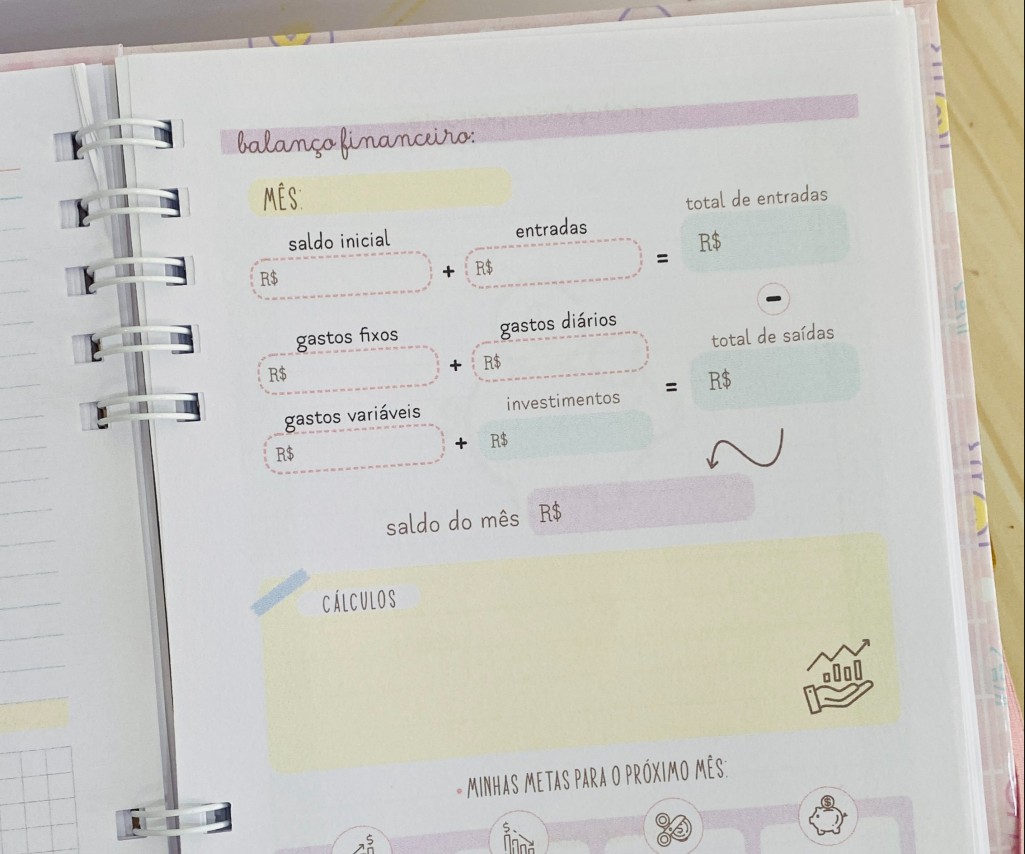 balanço financeiro:
MÊS:
saldo inicial
R$
+
entradas
R$
=
total de entradas
R$
-
gastos fixos
R$
+
gastos diários
R$
gastos variáveis
R$
+
investimentos
R$
=
total de saídas
R$
saldo do mês R$
CÁLCULOS
• MINHAS METAS PARA O PRÓXIMO MÊS: